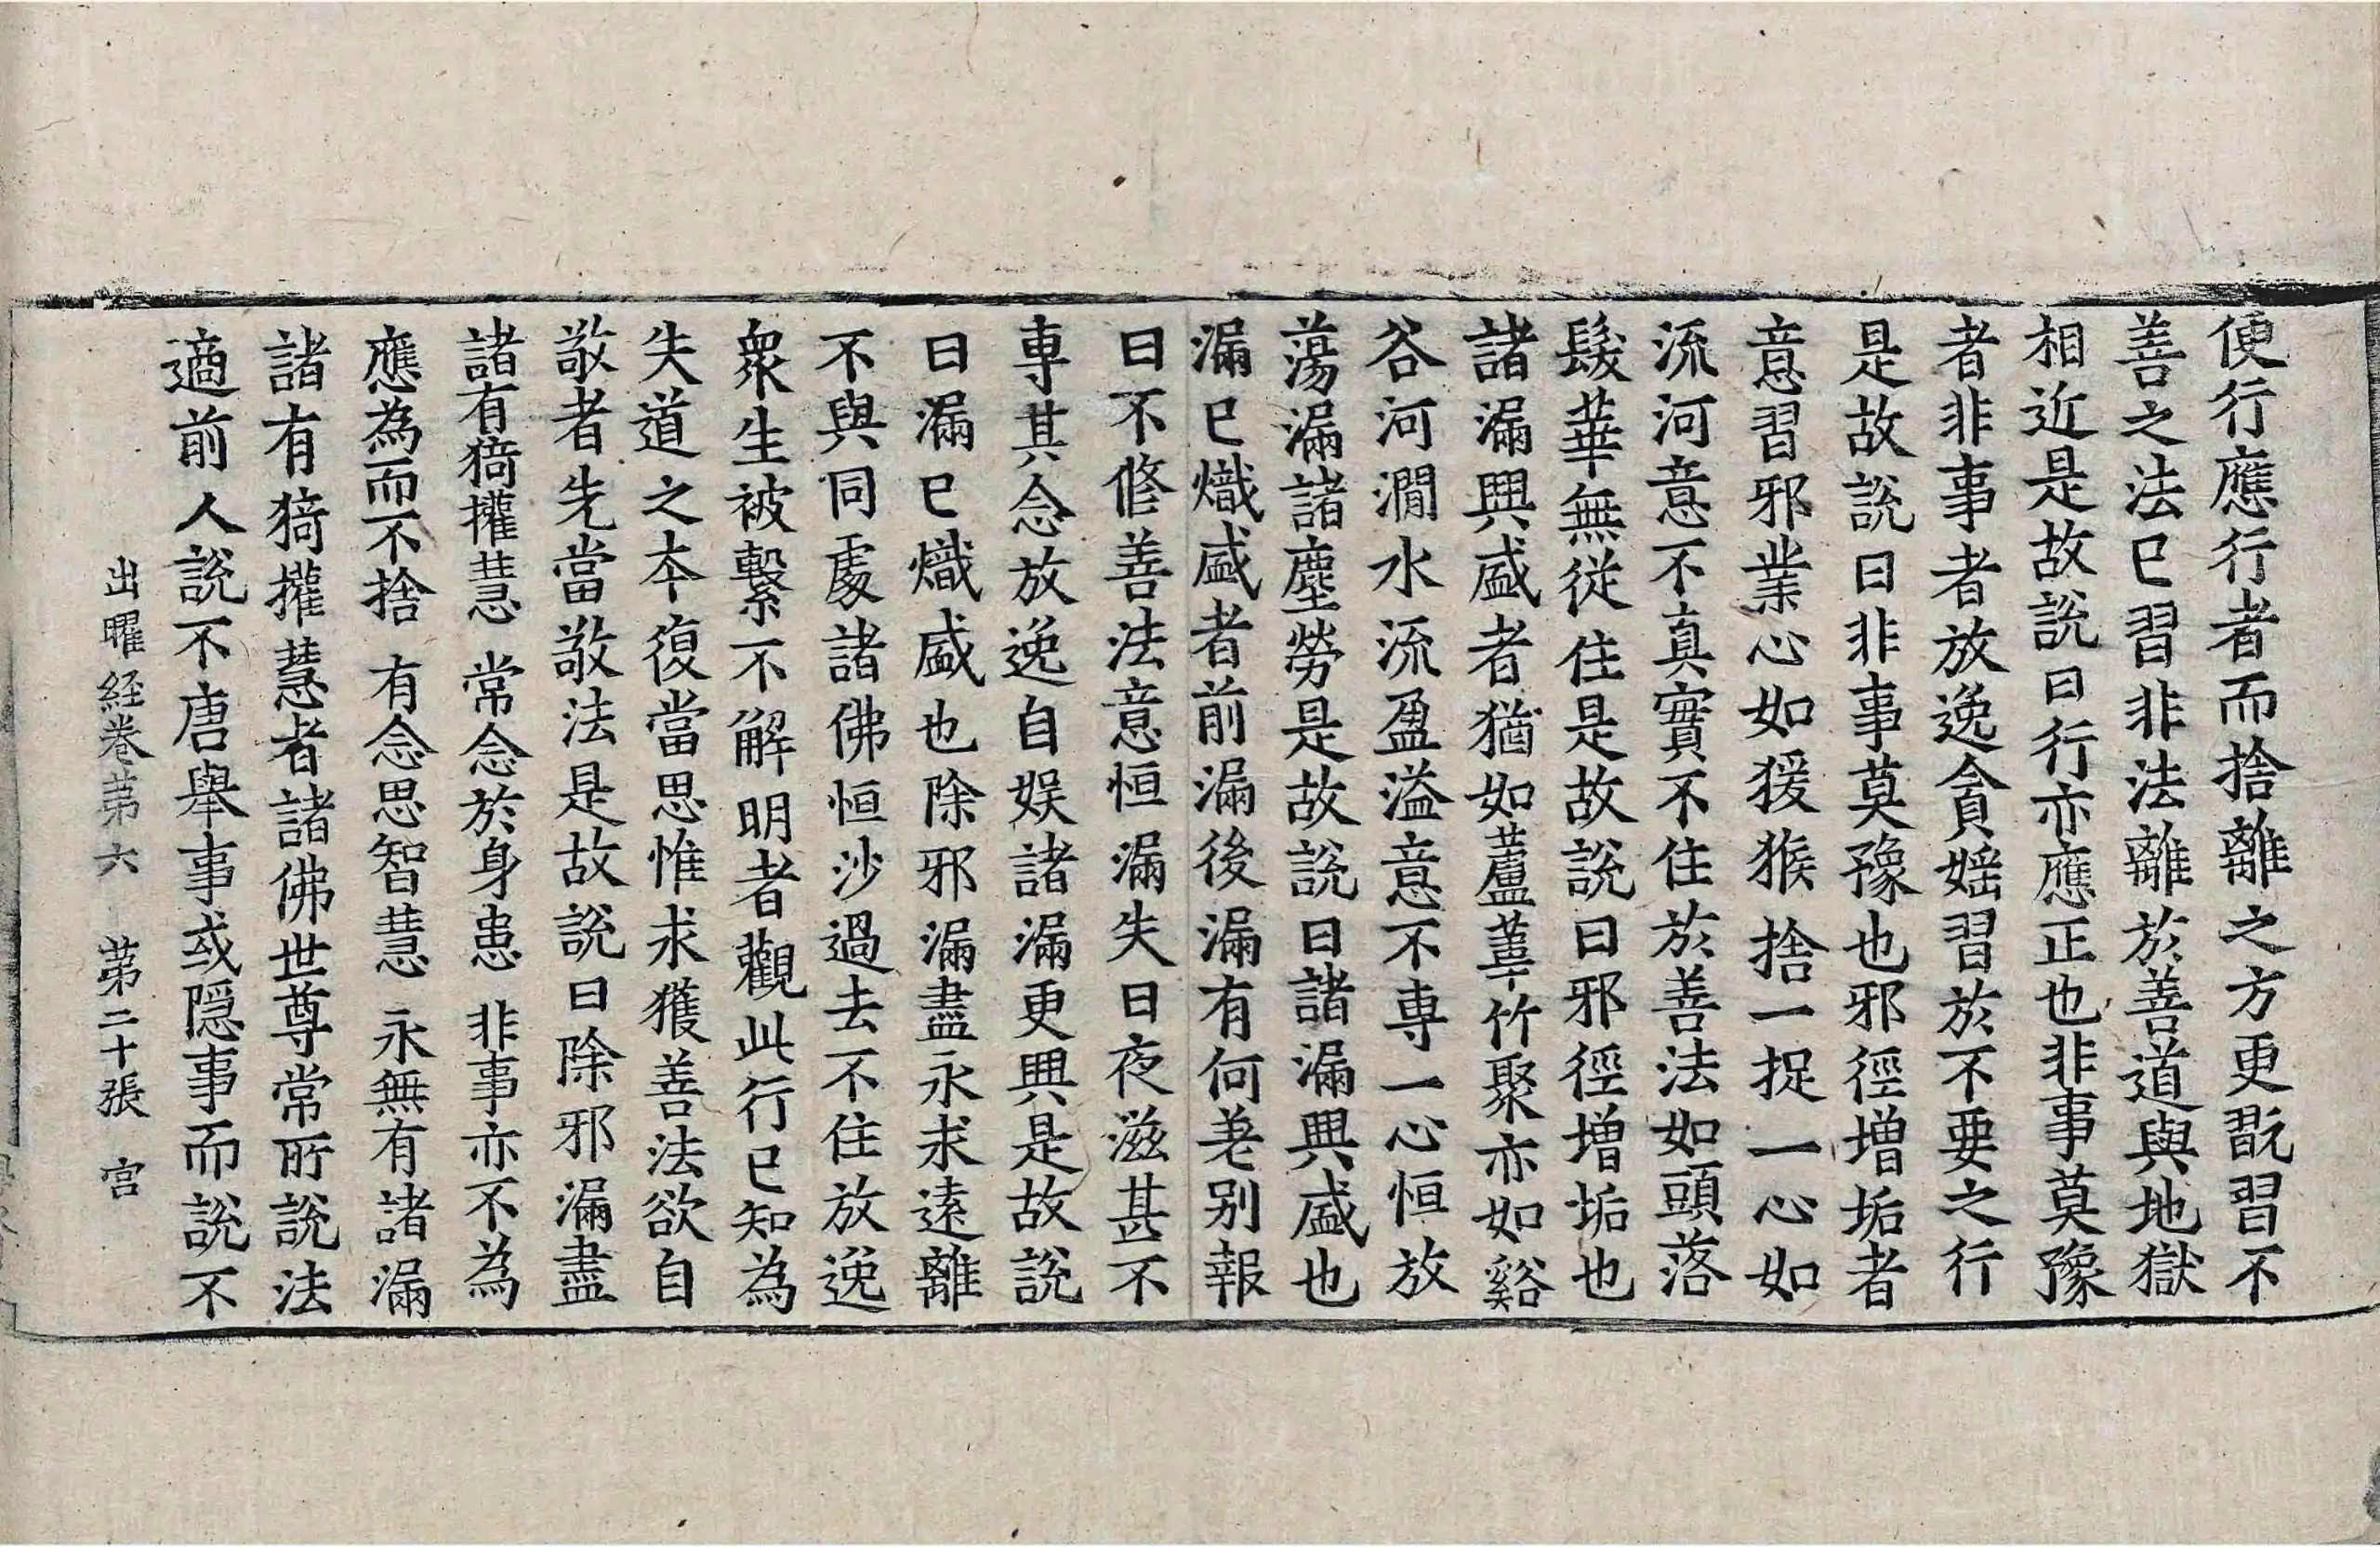 便行應行者而捨離之方更翫習不
善之法已習非法離於善道與地獄
相近是故說曰行亦應正也非事莫豫
者非事者放逸貪婬習於不要之行
是故說曰非事莫豫也邪徑增垢者
意習邪業心如猨猴捨一捉一心如
流河意不真實不住於善法如頭落
髮華無從住是故說曰邪徑增垢也
諸漏興盛者猶如蘆葦竹聚亦如谿
谷河澗水流盈溢意不專一心恒放
蕩漏諸塵勞是故說曰諸漏興盛也
漏已熾盛者前漏後漏有何差別報
曰不修善法意恒漏失日夜滋甚不
專其念放逸自娛諸漏更興是故說
曰漏已熾盛也除邪漏盡永求遠離
不與同處諸佛恒沙過去不住放逸
衆生被繫不解明者觀此行已知為
失道之本復當思惟求獲善法欲自
敬者先當敬法是故說曰除邪漏盡
諸有猗攉慧 常念於身患 非事亦不為
應為而不捨 有念思智慧 永無有諸漏
諸有猗攉慧者諸佛世尊常所說法
適前人說不唐舉事或隱事而說不
出曜經卷苐六 苐二十張 宫